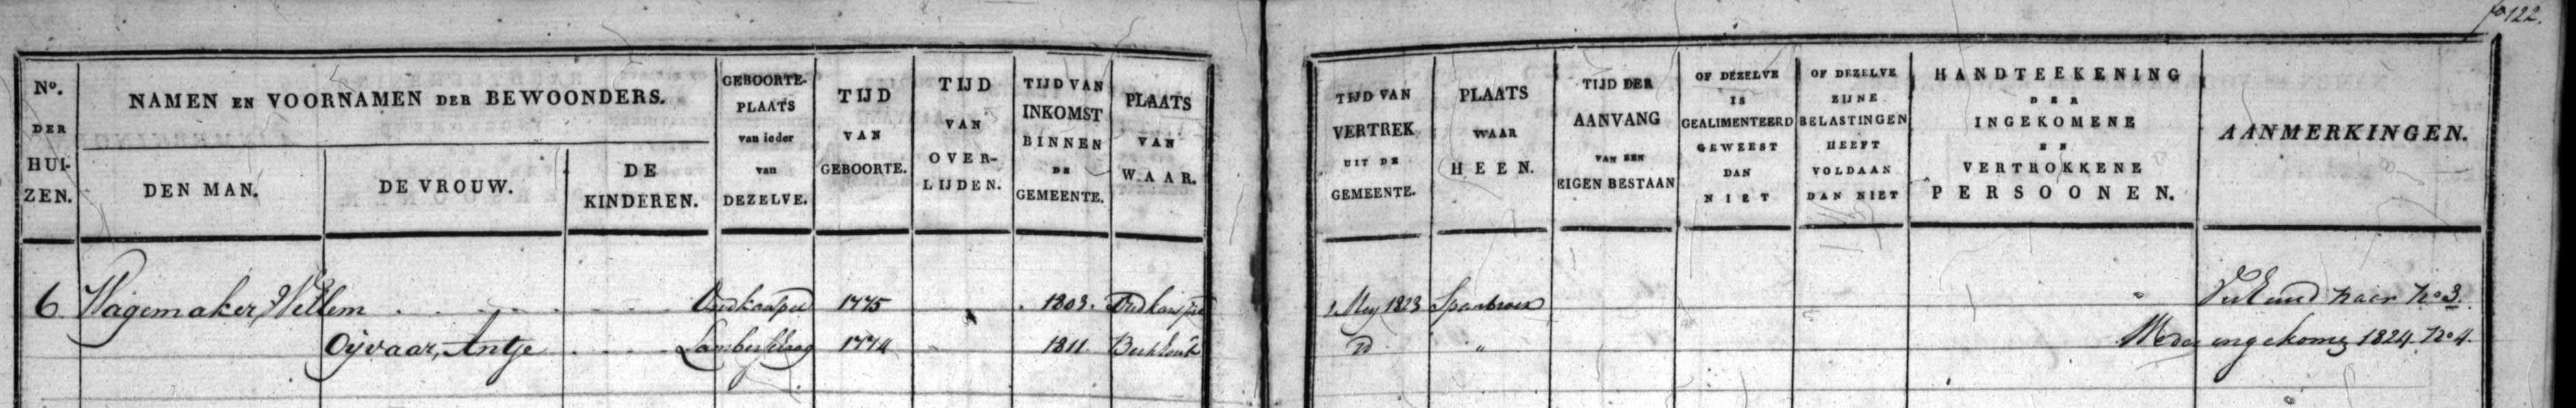 fo 122.
No. DER HUI-ZEN.
NAMEN EN VOORNAMEN DER BEWOONDERS.
DEN MAN.
DE VROUW.
DE KINDEREN.
GEBOORTE-PLAATS van ieder van DEZELVE.
TIJD VAN GEBOORTE.
TIJD VAN OVER-LIJDEN.
TIJD VAN INKOMST BINNEN DE GEMEENTE.
PLAATS VAN WAAR.
TIJD VAN VERTREK UIT DE GEMEENTE.
PLAATS WAAR HEEN.
TIJD DER AANVANG VAN EEN EIGEN BESTAAN
OF DEZELVE IS GEALIMENTEERD GEWEEST DAN NIET
OF DEZELVE ZIJNE BELASTINGEN HEEFT VOLDAAN DAN NIET
HANDTEEKENING DER INGEKOMENE EN VERTROKKENE PERSOONEN.
AANMERKINGEN.
6 Wagemaker, Willem Oudkarspel 1775 1803. Oudkarspel 1 Mey 1823 Spanbroek naar No 3.
Oijvaar, Antje 1774 1811 Berkhout do " ingekomen 1824 No 4.